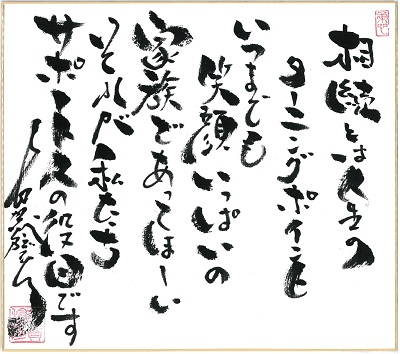 相続とは人生の
ターニングポイント
いつまでも
笑顔いっぱいの
家族であってほしい
それが私たち
サポート人の役目です